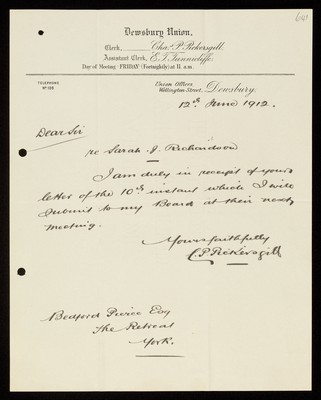 Dewsbury Union.
Clerk, Chas. P. Pickersgill.
Assistant Clerk, E. T. Tunnacliffe.
Day of Meeting- FRIDAY (Fortnightly) at 11 a.m.
TELEPHONE
Nº 103
Union Offices
Wellington Street, Dewsbury.
12th June 1912.
Dear Sir
re Sarah J. Richardson
I am duly in receipt of your
letter of the 10th instant which I will
submit to my Board at their next
meeting.
Yours faithfully
C. P. Pickersgill
Bedford Pierce Esq
The Retreat
York.